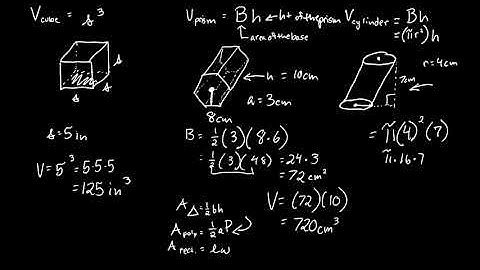 V cube = s³
s
s
s
s = 5 in
V = 5³ = 5·5·5
= 125 in³
V prism = Bh ← ht of the prism
area of the base
h = 10cm
a = 3cm
8cm
B = ½(3)(8·6)
= ½(3)(48) = 24·3
= 72 cm²
A△ = ½bh
A poly = ½aP
A rect. = lw
V = (72)(10)
= 720cm³
V cylinder = Bh
= (πr²)h
r = 4cm
7cm
= π(4)²(7)
π·16·7